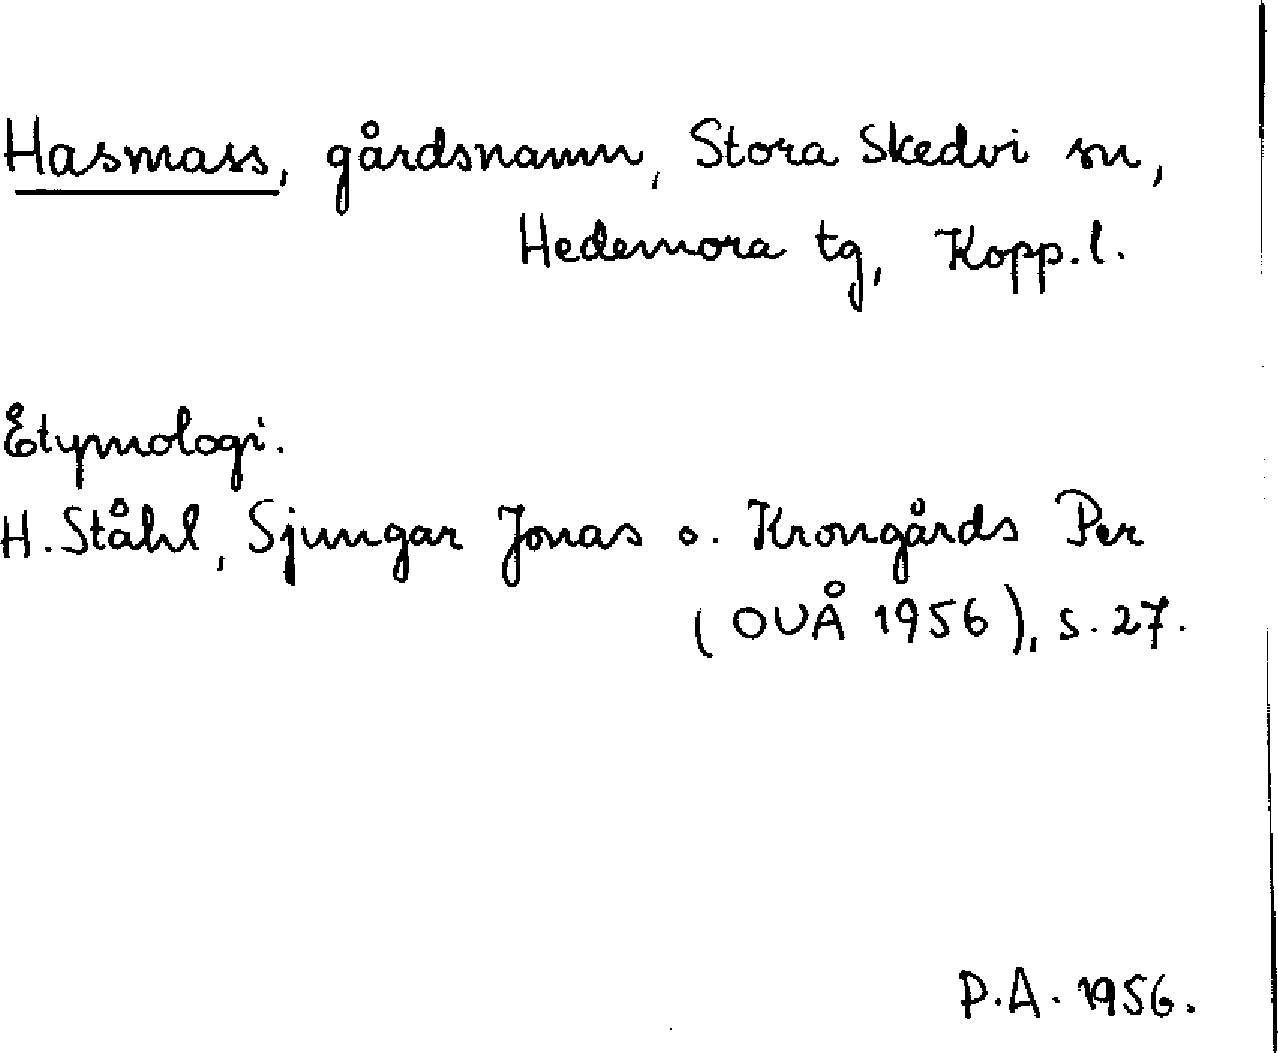 Hasmass, gårdsnamn, Stora Skedvi sn,
Hedemora tg, Kopp.l.
Etymologi.
H. Ståhl, Sjungar Jonas o. Krongårds Per
(OUÅ 1956), s. 27.
P.A. 1956.